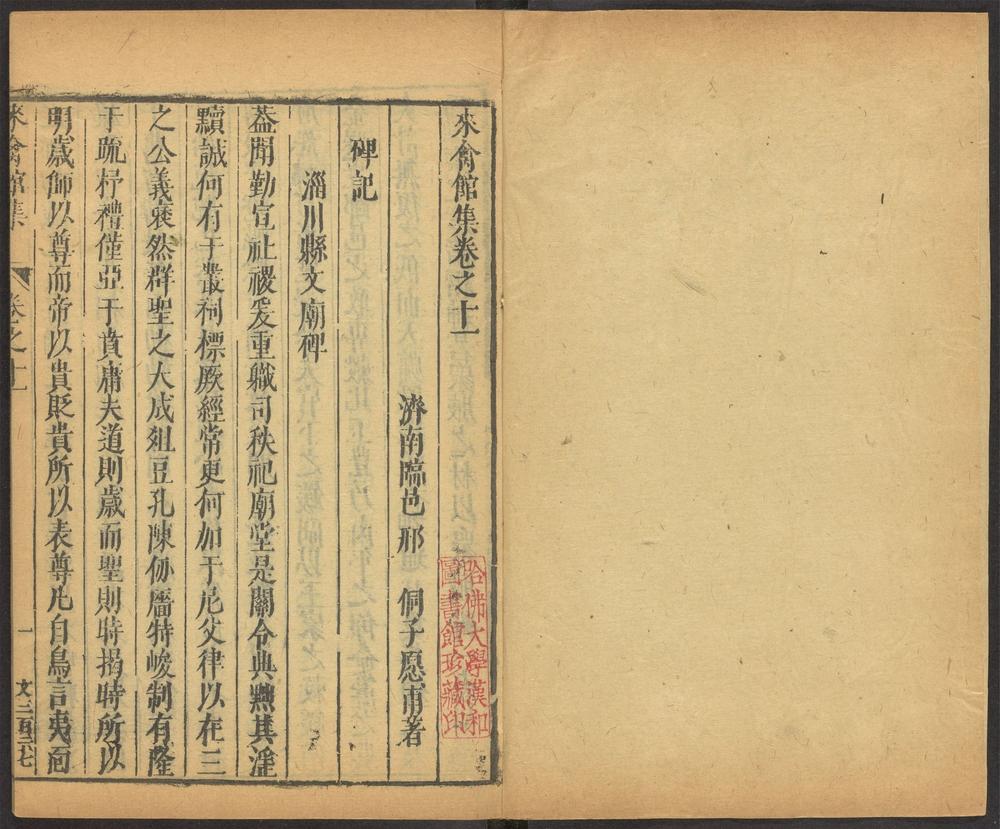 來禽館集卷之十一
濟南臨邑邢 侗子愿甫著
碑記
淄川縣文廟碑
葢聞勤宣祉禝爰重職司秩祀廟堂是關令典㷱其淫
黷誠何有于叢祠標厥經常更何加于尼父律以在三
之公義裒然群聖之大成爼豆孔陳仞牆特峻制有隆
于䟽杼禮僅亞于賁庸夫道則歲而聖則時揭時所以
明歲師以尊而帝以貴貶貴所以表尊凢白鳥言夷面
來禽館集
卷之十一
一
文三百三七
哈佛大學漢和
圖書館珍藏印